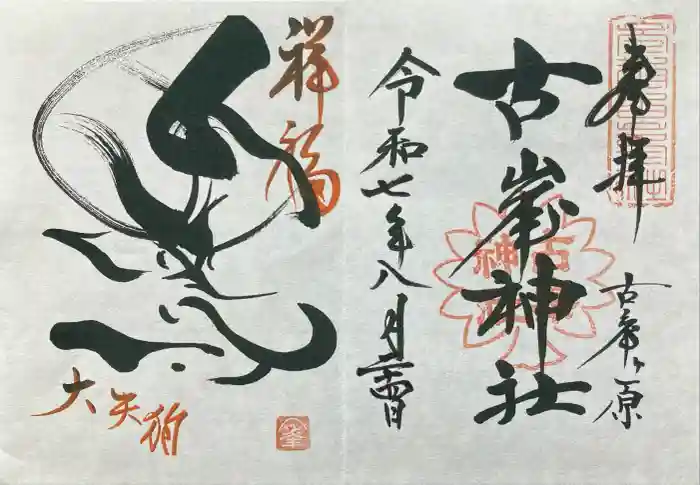 奉拝
古峯ヶ原
古峯神社
令和七年八月二十四日
祥福
大天狗
峯